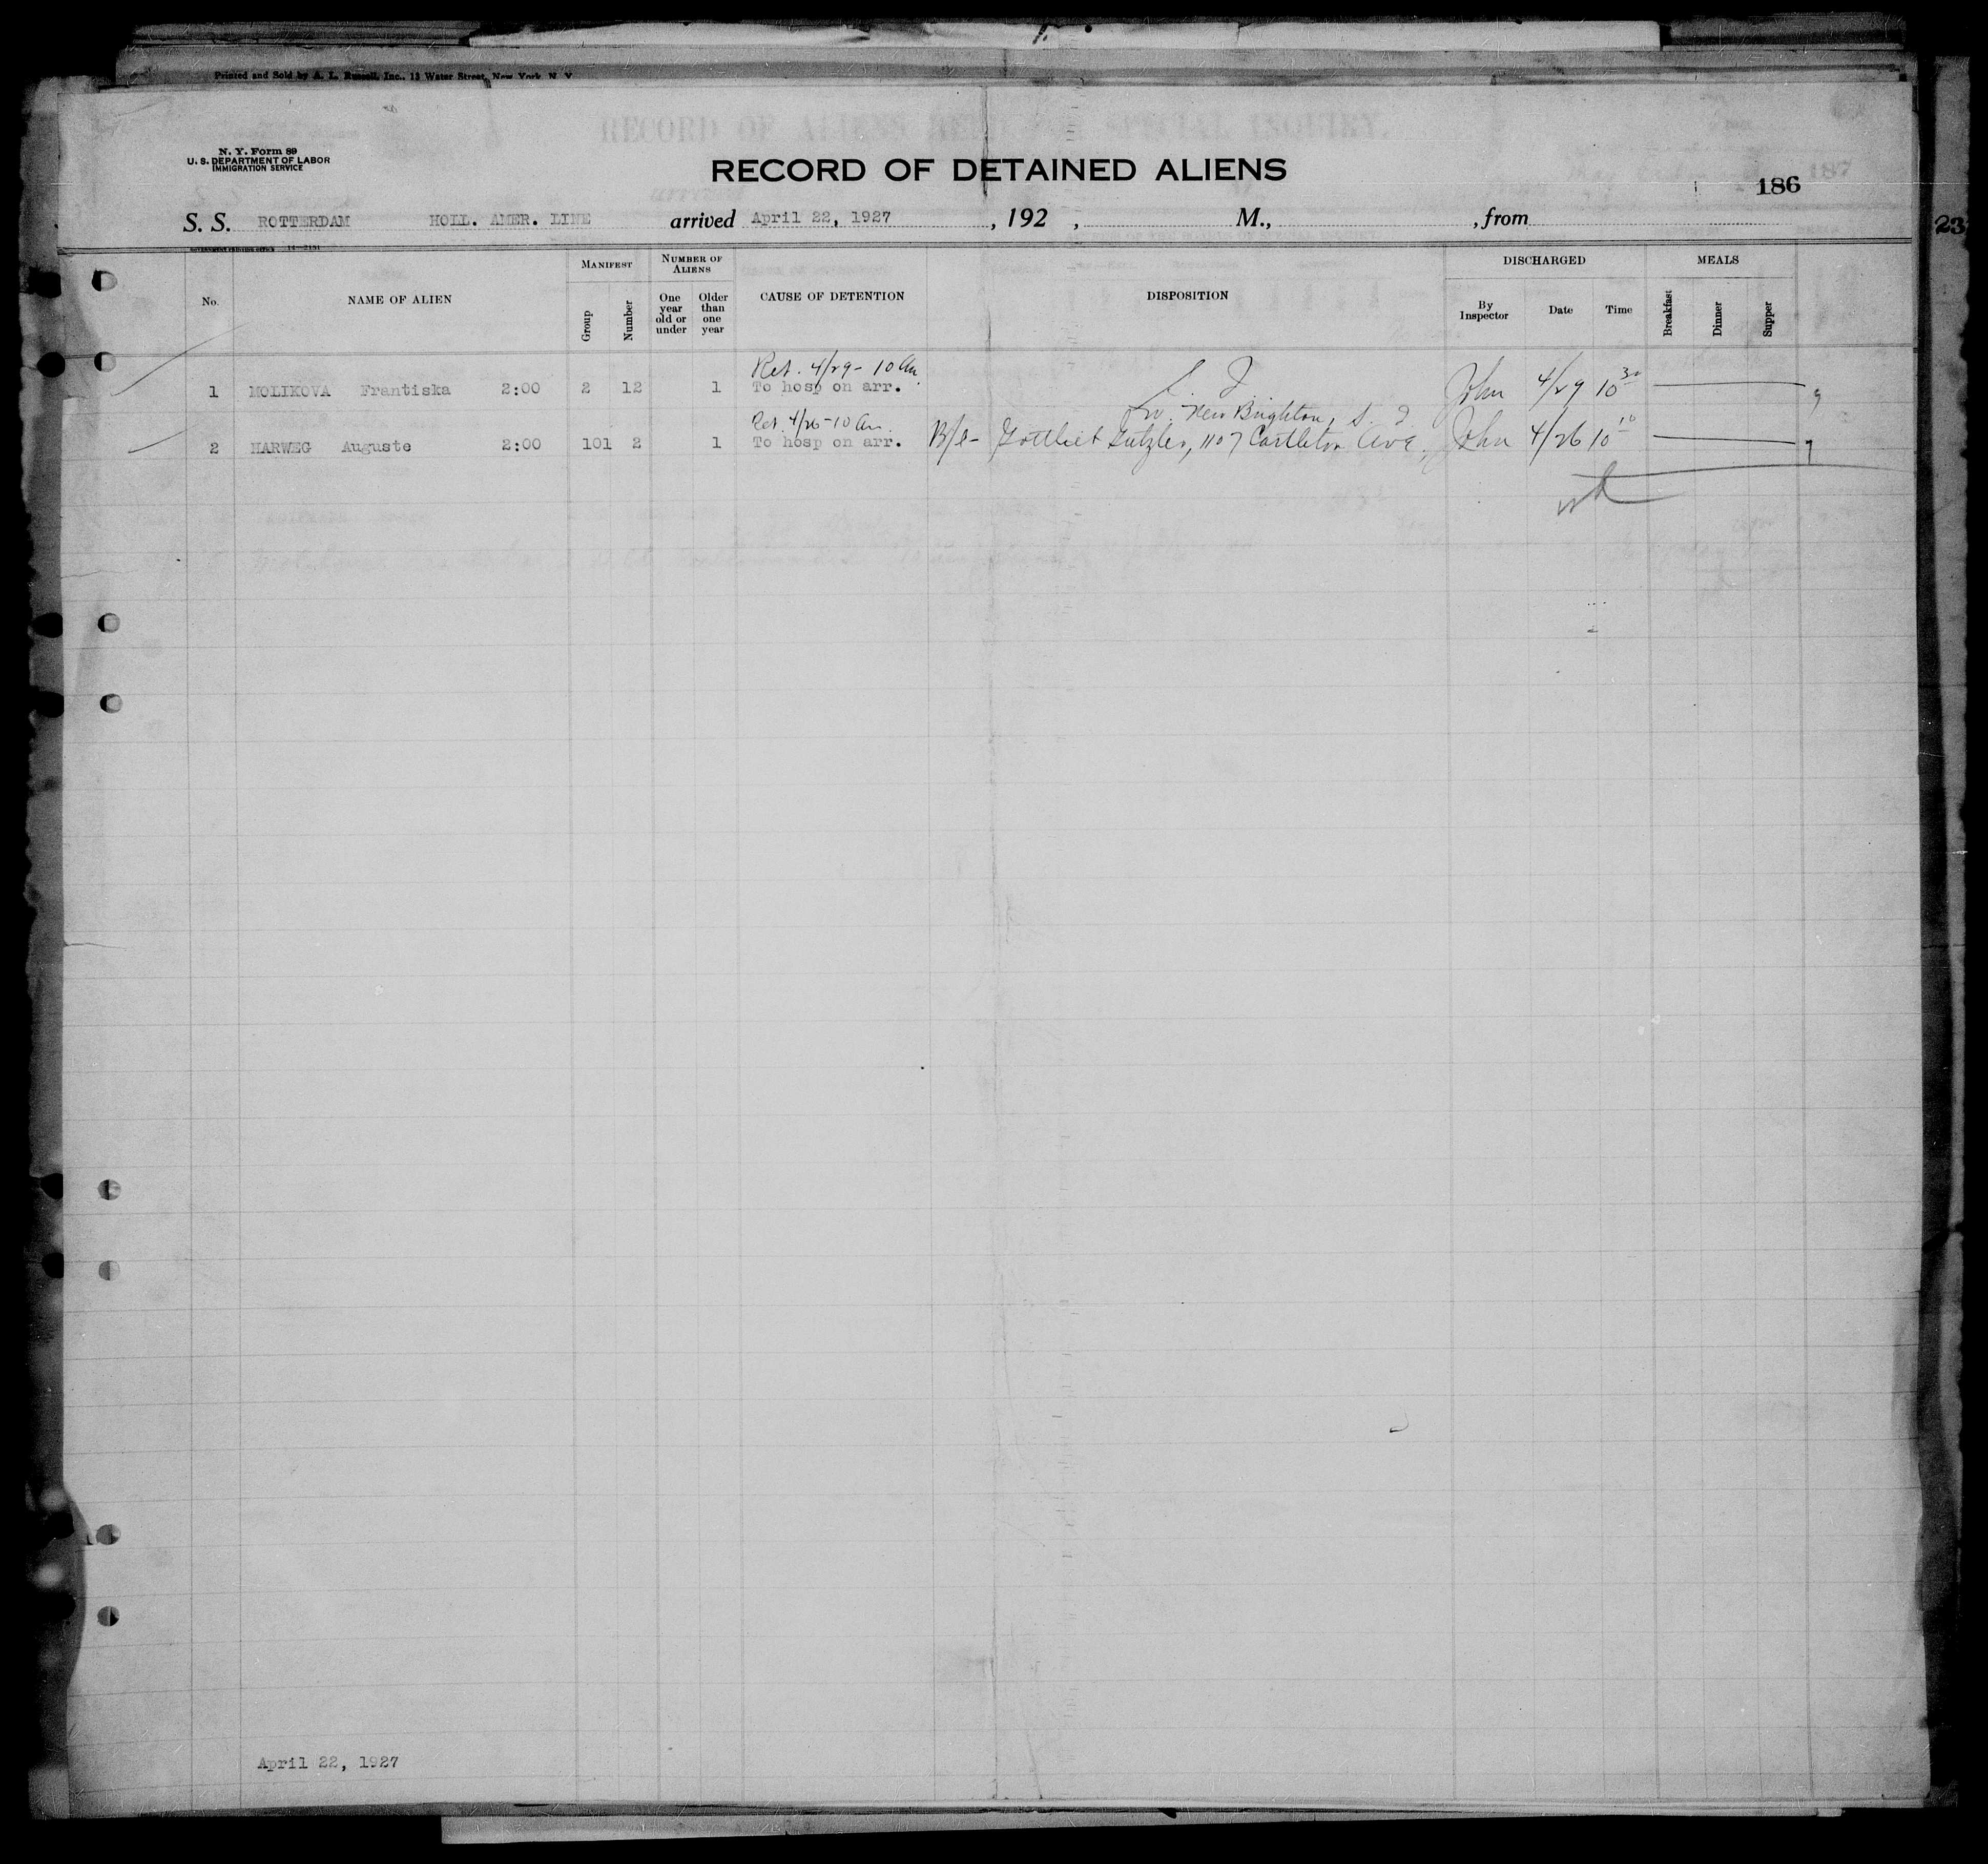 Printed and Sold by A. L. Russell, Inc., 13 Water Street, New York, N. Y.
N. Y. Form 89
U. S. DEPARTMENT OF LABOR
IMMIGRATION SERVICE
RECORD OF DETAINED ALIENS
187
186
S. S. ROTTERDAM HOLL. AMER. LINE arrived April 22, 1927, 192 , M., , from
23
GOVERNMENT PRINTING OFFICE 14—2151
No. NAME OF ALIEN MANIFEST Group Number NUMBER OF ALIENS One year old or under Older than one year CAUSE OF DETENTION DISPOSITION DISCHARGED By Inspector Date Time MEALS Breakfast Dinner Supper
Ret. 4/29 - 10 am
1 MOLIKOVA Frantiska 2:00 2 12 1 To hosp on arr. John 4/29 10 30
Ret. 4/26 - 10 am. New Brighton, S. I.
2 HARWEG Auguste 2:00 101 2 1 To hosp on arr. B/l - Gottlieb Gutzler, 1107 Castleton Ave, John 4/26 10 10
April 22, 1927